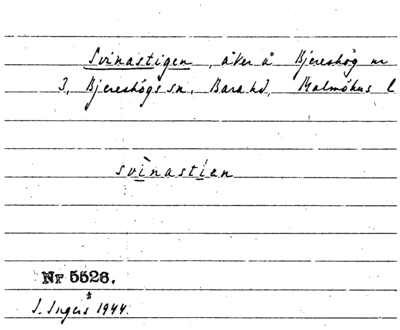 Svinastigen, åker å Bjereshög nr
3, Bjereshögs sn, Bara hd, Malmöhus l
svìnastíen
Nr 5526.
I. Ingers 1944.